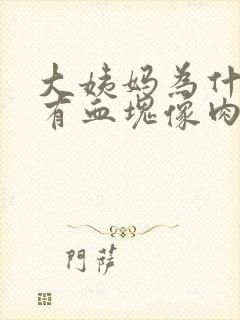 大姨妈為什
有血塊像肉
門薩